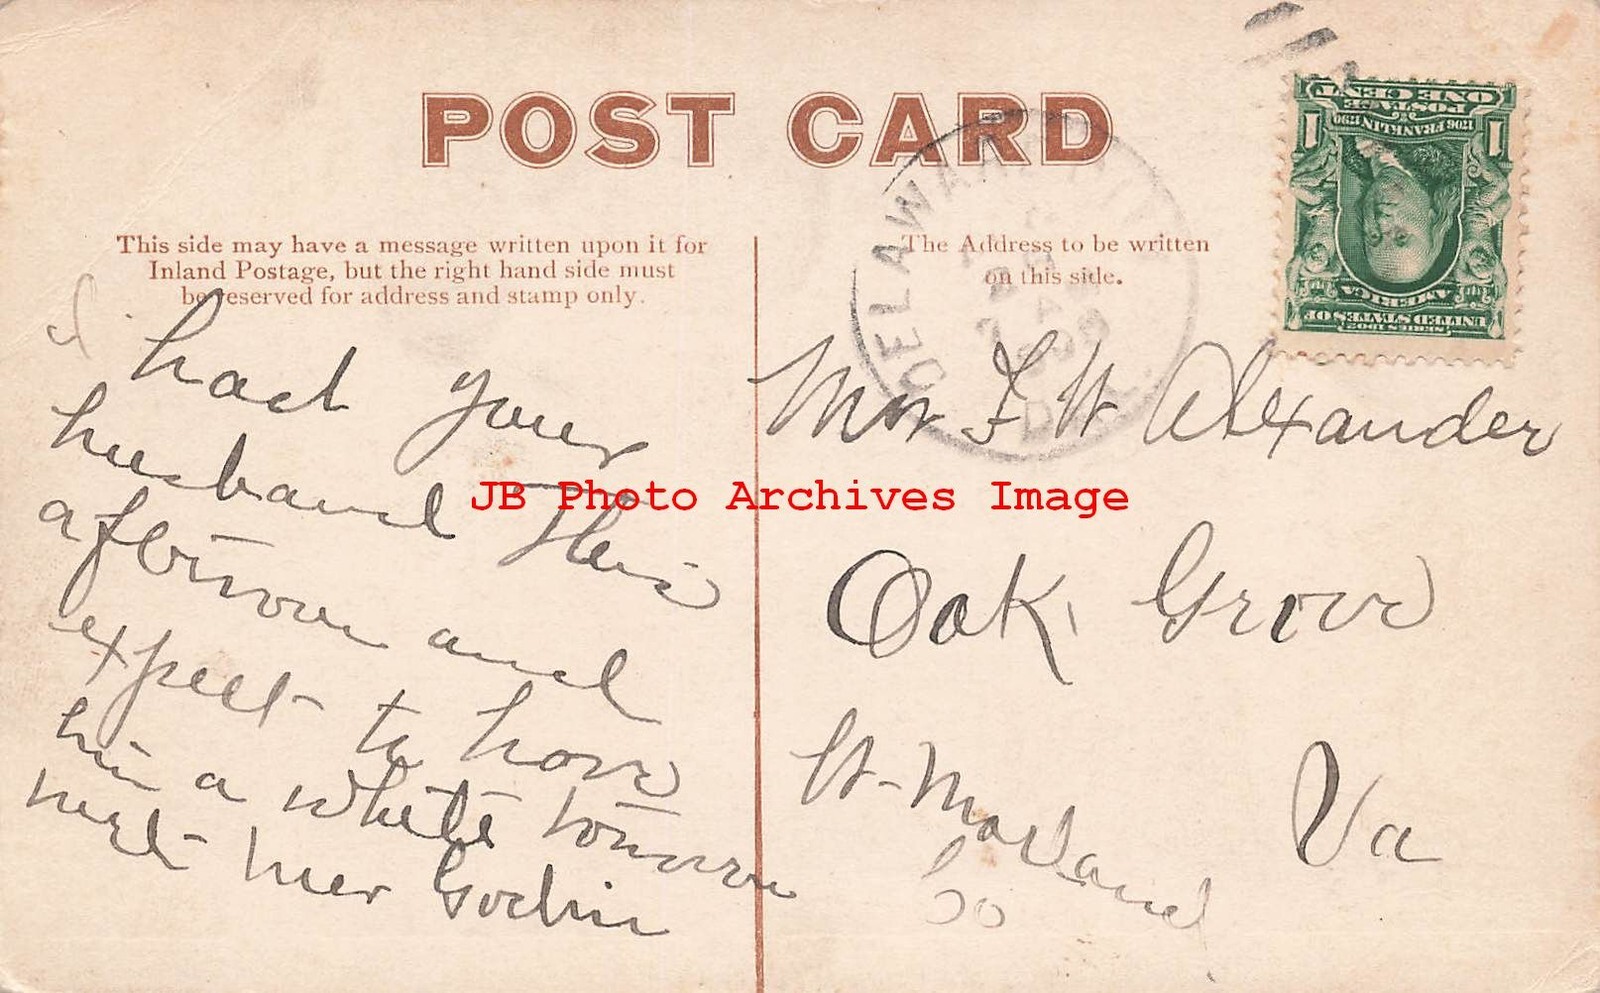 POST CARD
This side may have a message written upon it for
Inland Postage, but the right hand side must
be reserved for address and stamp only.
The Address to be written
on this side.
DELAWARE CITY
DEL.
1909
POSTAGE
ONE CENT
1706 FRANKLIN 1790
1 1
SERIES 1902
UNITED STATES OF
AMERICA
I had your
husband this
afternoon and
expect to have
him a while tomorrow
next
JB Photo Archives Image
Mrs F W Alexander
Oak Grove
W-Morland Va
Co